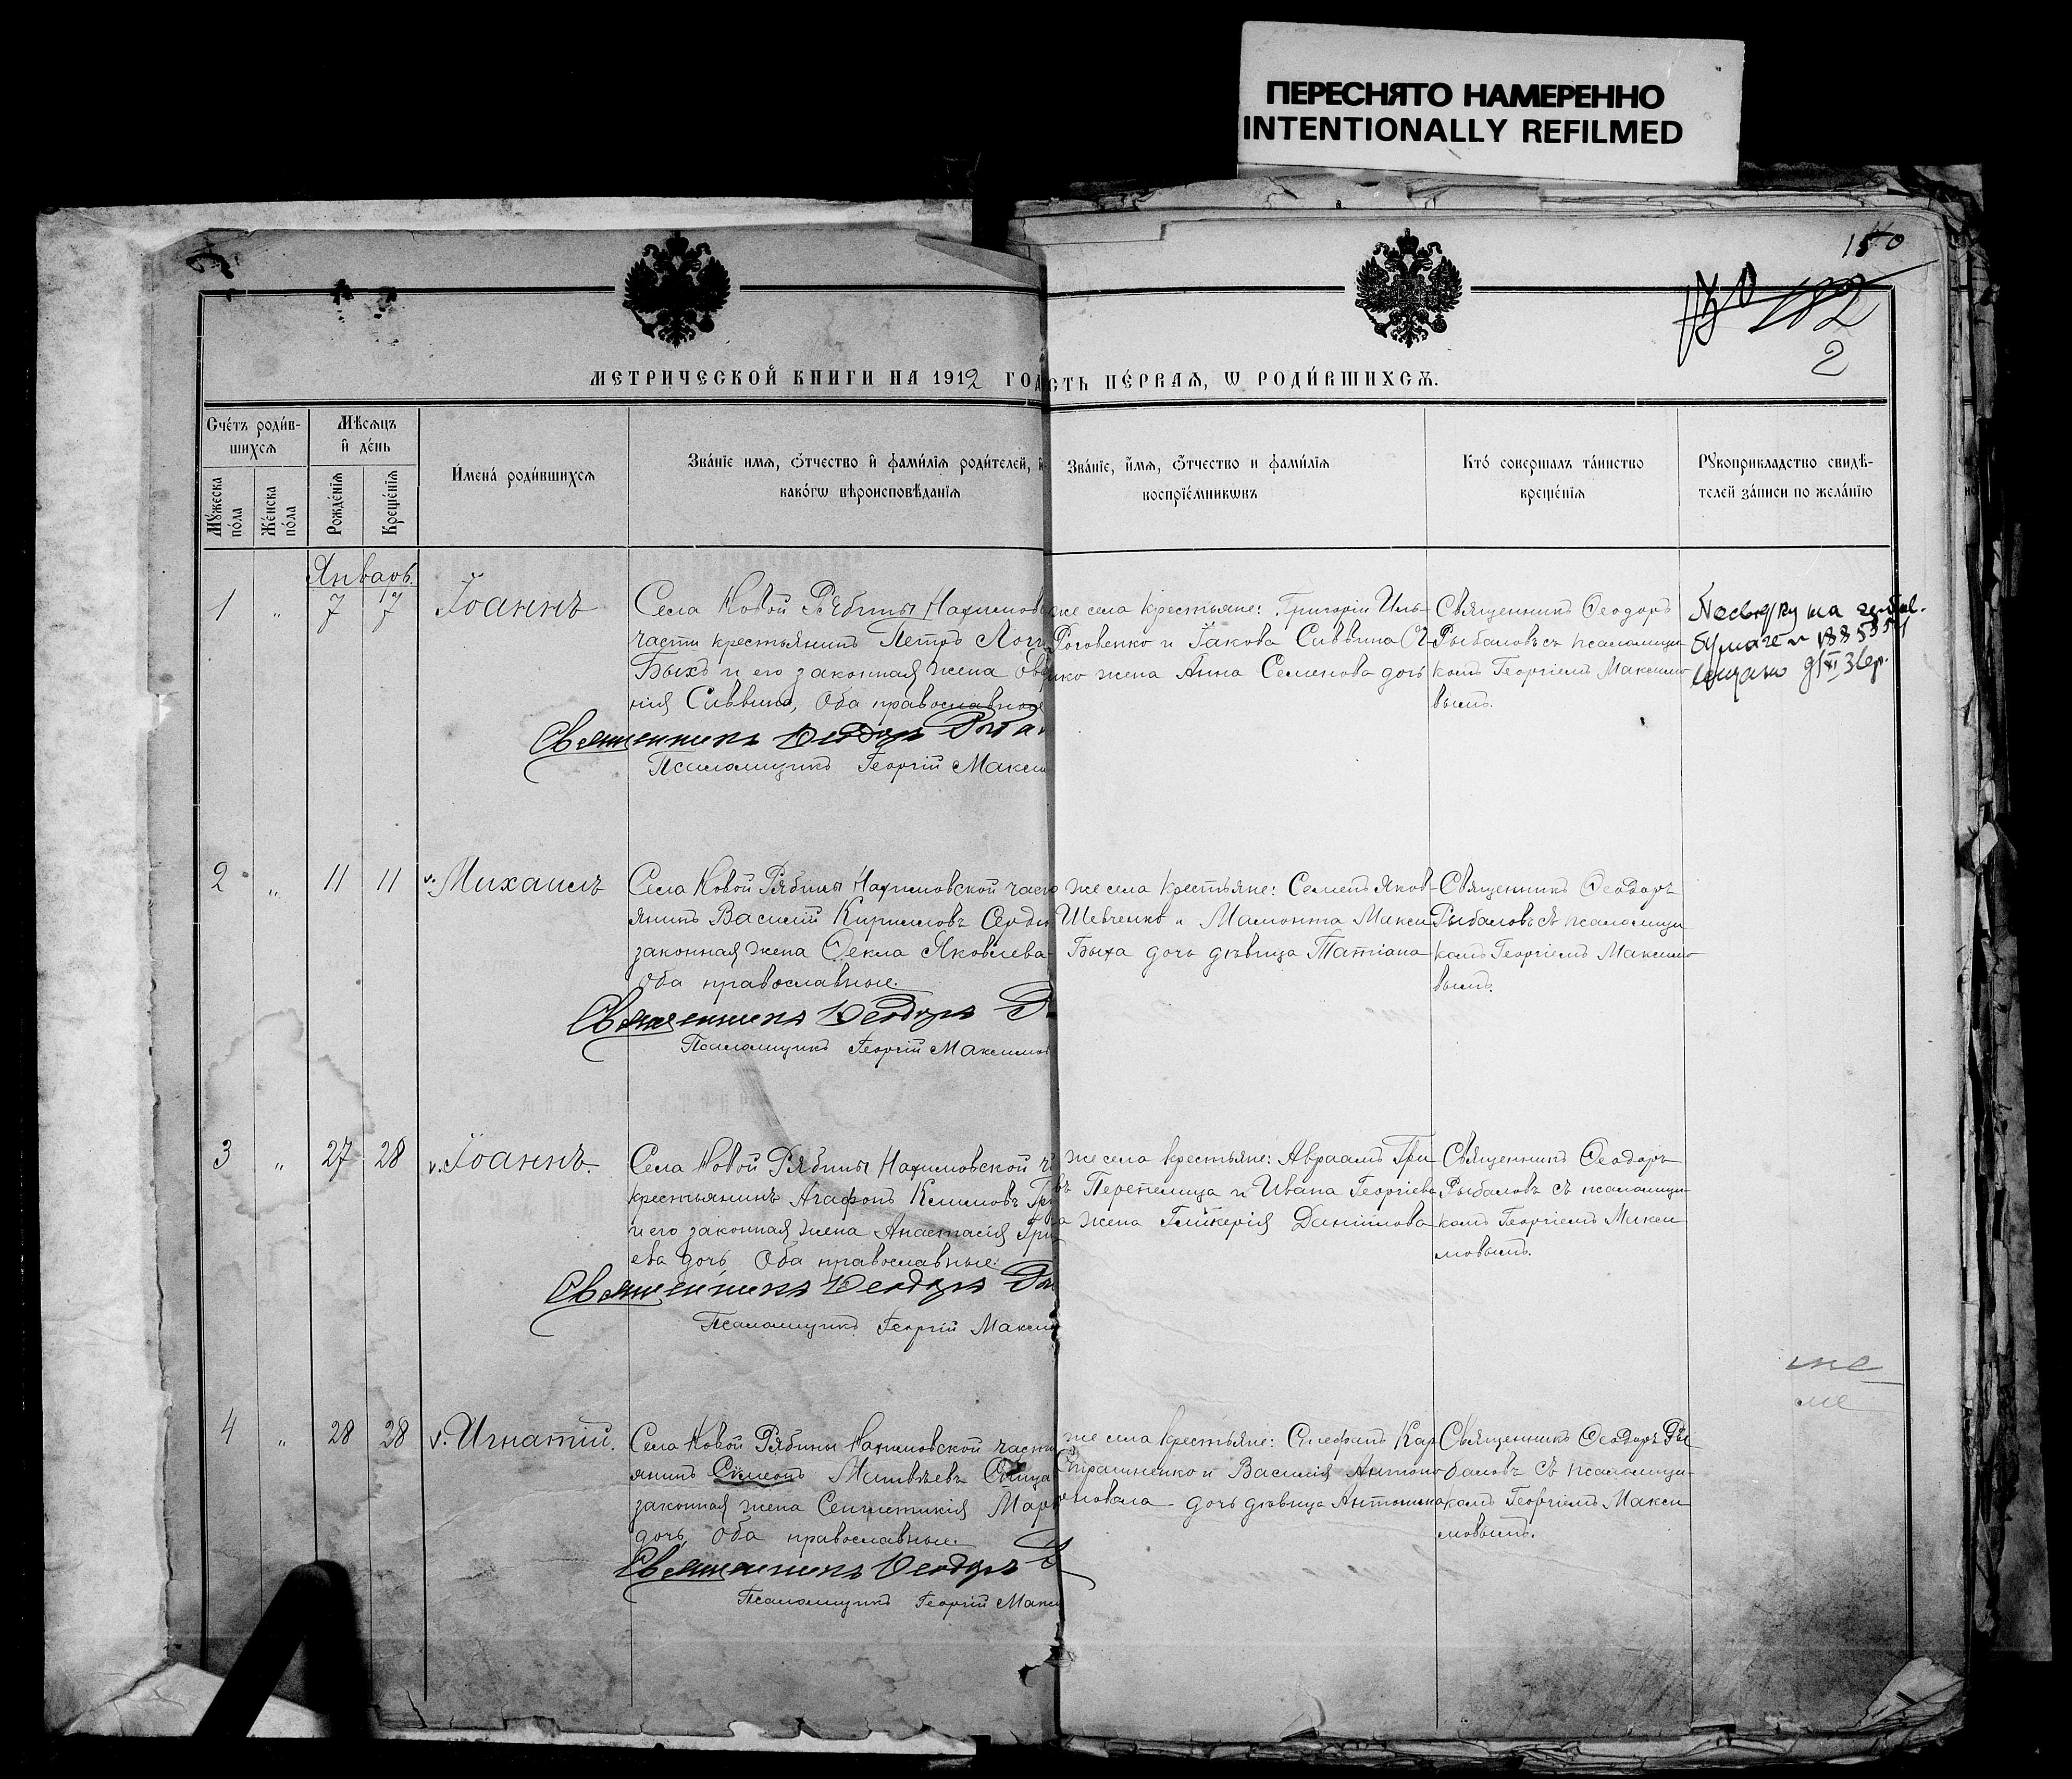 ПЕРЕСНЯТО НАМЕРЕННО
INTENTIONALLY REFILMED
150
182
2
МЕТРИЧЕСКОЙ КНИГИ НА 1912 ГО
СТЬ ПЕ́РВАЯ, Ѡ РОДИ́ВШИХСѦ.
Сче́тъ роди́в-
шихсѧ
Мꙋ́жеска по́ла
Же́нска по́ла
Мѣ́сѧцъ
и҆ де́нь
Рожде́нїѧ
Креще́нїѧ
И҆мена̀ роди́вшихсѧ
Зва́нїе имѧ, ѻ҆́тчество и҆ фами́лїѧ роди́телей, и҆
како́гѡ вѣроисповѣ́данїѧ
Зва́нїе, и҆́мѧ, ѻ҆́тчество и фами́лїѧ
воспрїе́мникѡвъ
Кто̀ соверша́лъ та́инство
креще́нїѧ
Рꙋкоприкла́дство свидѣ́-
телей за́писи по жела́нїю
Январь.
1 " 7 7 Іоаннъ
Села Новой Рябины Нахимов
части крестьянинъ Петръ Логг
Быхъ и его законная жена Ев
нія Саввина, Оба православные
Священникъ Ѳеодоръ Рыба
Псаломщикъ Георгій Макси
же села крестьяне: Григорій Иль-
Роговенко и Іакова Саввина
жена Анна Семенова дочь
Священникъ Ѳеодоръ
Рыбаловъ съ псаломщи-
комъ Георгіемъ Максимо
вымъ.
2 " 11 11 v. Михаилъ
Села Новой Рябины Нахимовской част
янинъ Василій Кирилловъ Сердю
законная жена Ѳекла Яковлева
оба православные.
Священникъ Ѳеодоръ Р
Псаломщикъ Георгій Максимов
же села крестьяне: Семенъ Яков-
Шевченко и Мамонта Макси
Быха дочь дѣвица Татіана
Священникъ Ѳеодоръ
Рыбаловъ съ псаломщи
комъ Георгіемъ Максимо
вымъ.
3 " 27 28 v. Іоаннъ.
Села Новой Рябины Нахимовской ч
крестьянинъ Агафонъ Климовъ Гри
и его законная жена Анастасія Григ
ева дочь Оба православные:
Священникъ Ѳеодоръ Ры
Псаломщикъ Георгій Макси
же села крестьяне: Авраамъ Гри
въ Перепелица и Ивана Георгіева
жена Гликерія Даніилова
Священникъ Ѳеодоръ
Рыбаловъ съ псаломщи-
комъ Георгіемъ Макси
мовымъ.
4 " 28 28 v. Игнатій.
Села Новой Рябины Нахимовской части
янинъ Симеонъ Матвѣевъ
законная жена Синклитикія Мар
дочь, оба православные.
Священникъ Ѳеодоръ Р
Псаломщикъ Георгій Макси
же села крестьяне: Стефанъ Кар
Страшненко и Василія Антоно
дочь дѣвица Антонина
Священникъ Ѳеодоръ Ры
баловъ съ псаломщи-
комъ Георгіемъ Макси
мовымъ.